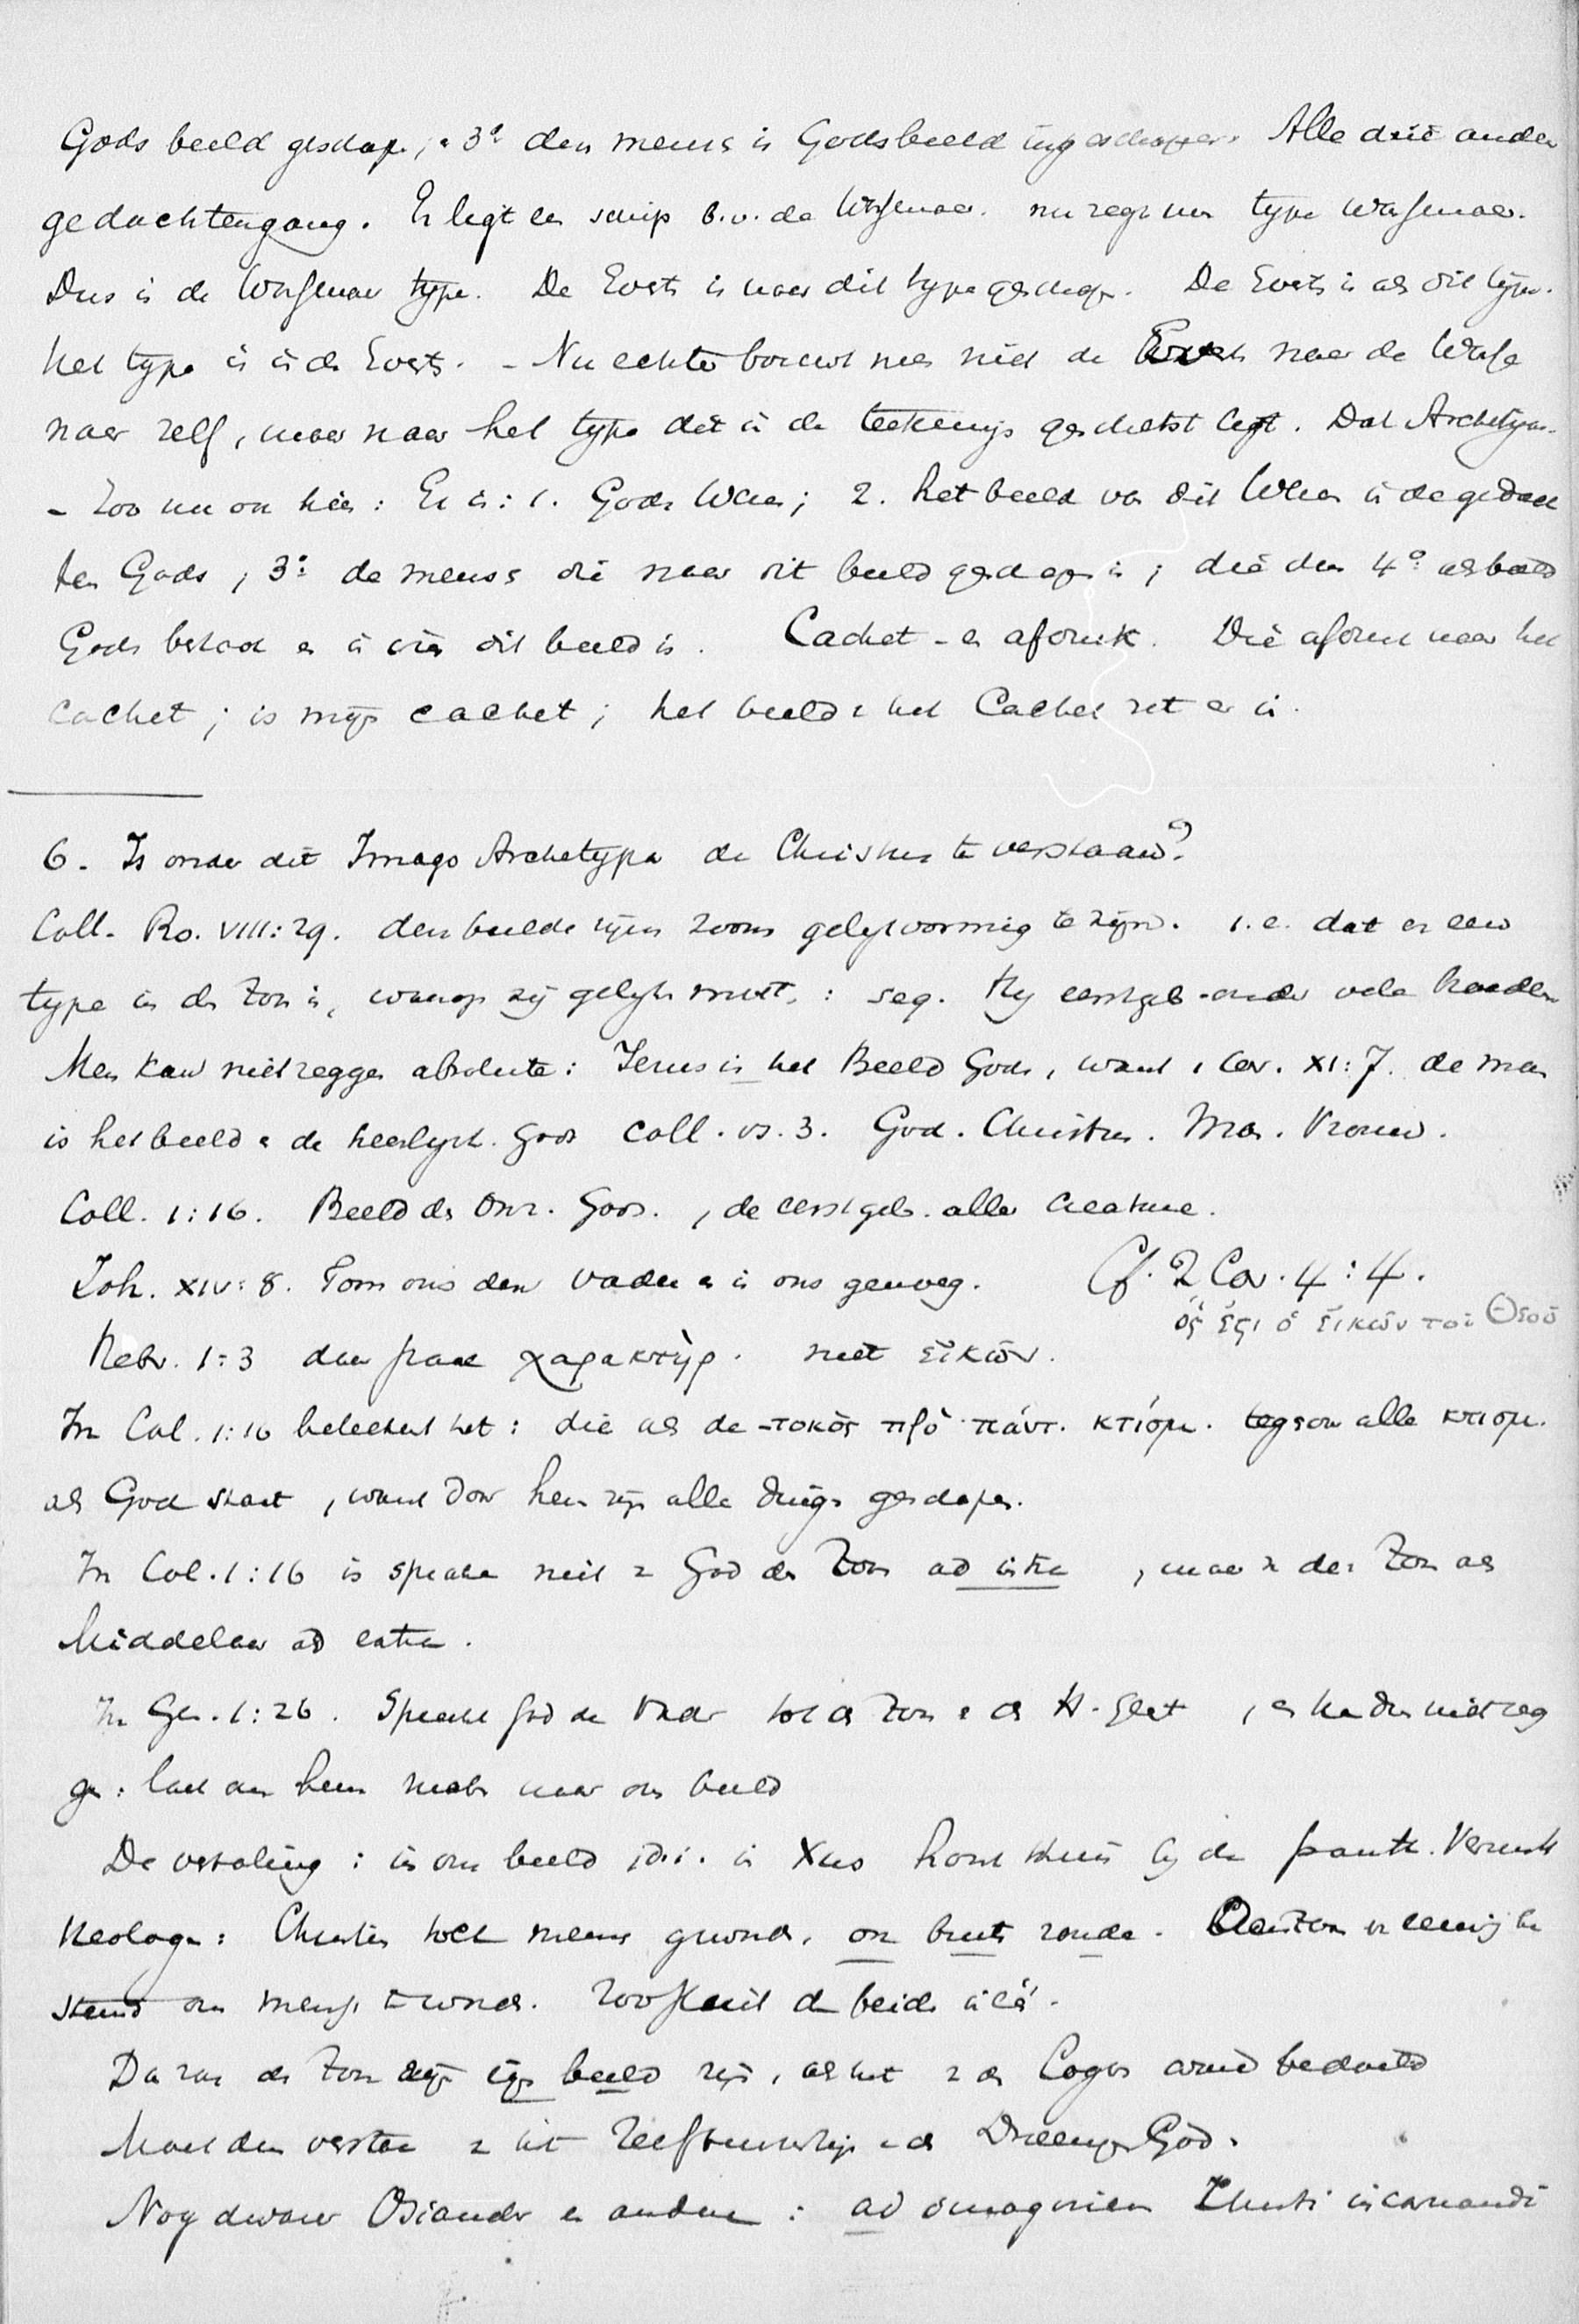 Gods beeld geschap., e 3º den mens is Godsbeeld ingeschapen. Alle drie ander
gedachtengang. Er ligt een schip b.v. de Wassenaer. nu zegt men type Wassenaer.
Dus is de Wassenaer type. De Evers is naar dit type geschap. De Evers is als dit type.
het type is in de Evers. - Nu echter bouwt men niet de Evers naar de Wasse
naer zelf, maar naar het type dat in de teekening geschetst ligt. Dat Archetype.
- Zoo nu ook hier: Er is: 1. Gods Wezen; 2. het beeld van dit Wezen in de gedach
ten Gods, 3º de mens die naar dit beeld geschapen is; die dus 4º als beeld
Gods bestaat en in wien dit beeld is. Cachet - en afdruk. Die afdruk naar het
cachet; is mijn cachet; het beeld v het Cachet zit er in.
6. Is onder dit Imago Archetypa de Christus te verstaan?
Coll. Ro. VIII:29. den beelde zijns Zoons gelijkvormig te zijn. i.e. dat er een
type in den Zoon is, waarop zij gelijken moet, : seq. Hij eerstgeb. onder vele broeders
Men kan niet zeggen absolute: Jezus is het Beeld Gods, want 1 Cor. XI:7. de man
is het beeld e de heerlijkh. Gods coll. vs. 3. God. Christus. Man. Vrouw.
Coll. 1:16. Beeld des Onz. Gods., de eerstgeb. aller creature.
Joh. XIV:8. Toon ons den Vader e is ons genoeg. Cf. 2 Cor. 4:4.
ὅς ἐστι ὁ εἰκὼν τοῦ Θεοῦ
Hebr. 1:3 daar staat χαρακτήρ. niet εἰκών.
In Col. 1:16 beteekent het: die als de -τοκος πρὸ πάντ. κτίσμ. tegenov alle κτισμ.
als God staat, want door hem zijn alle dingen geschapen.
In Col. 1:16 is sprake niet v God den Zoon ad intra, maar v den Zoon als
Middelaar ad extra.
In Gen. 1:26. Spreekt God de Vader tot den Zoon e den H. Geest, en kan dus niet zeg
gen: laat ons hem maken naar ons beeld
De vertaling: in ons beeld, d.i. in Xus komt thuis bij de panth. Vermitt
theologen: Christus toch mens geword. ook buiten zonde. De Zoon is eeuwig be
stemd om mensch te worden. Zoo sluit de beide in één.
Dan zou de Zoon zijn eigen beeld zijn, als het v den Logos werd bedoeld
Moet dus verstaan v het zelfbewustzijn v den Drieeenigen God.
Nog dwazer Osiander en andere: ad imaginem Christi incarnandi